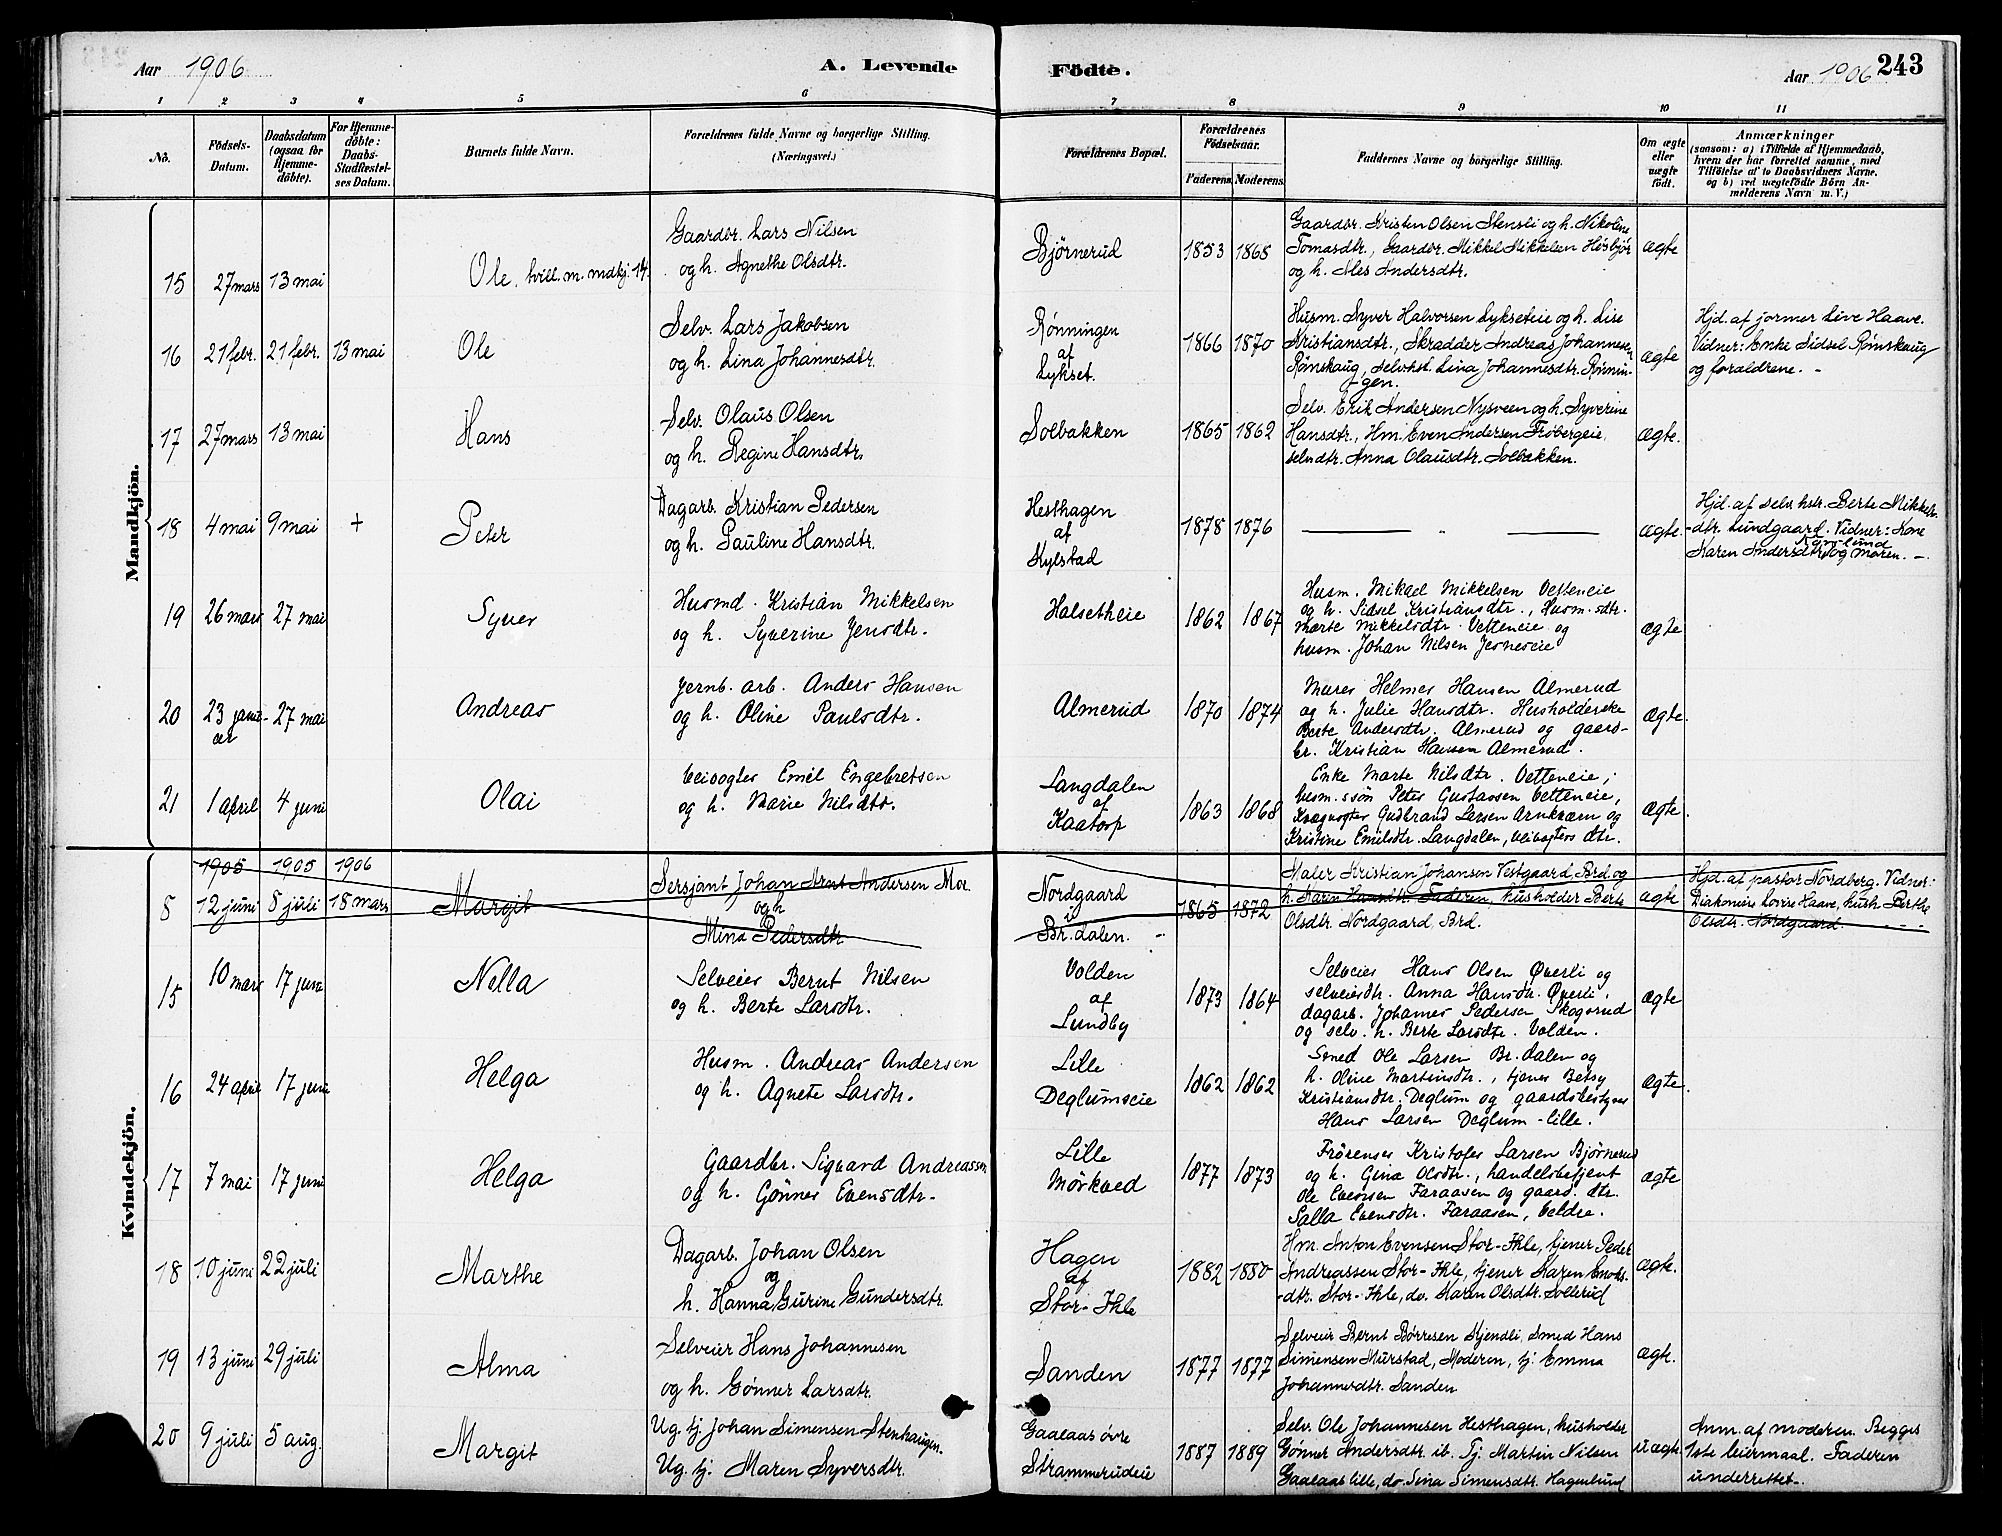 Aar 1906
A. Levende
Födte.
Aar 1906 243
1 2 3 4 5 6 7 8 9 10 11
No.
Födsels-
Datum.
Daabsdatum
(ogsaa for
Hjemme-
döbte).
For Hjemme-
döbte:
Daabs-
Stadfæstel-
ses Datum.
Barnets fulde Navn.
Forældrenes fulde Navne og borgerlige Stilling.
(Næringsvei.)
Forældrenes Bopæl.
Forældrenes
Födselsaar.
Faderens. Moderens.
Faddernes Navne og borgerlige Stilling.
Om ægte
eller
uægte
födt.
Anmærkninger
(saasom: a) i Tilfælde af Hjemmedaab,
hvem der har forrettet samme, med
Tilföielse af to Daabsvidners Navne,
og b) ved uægtefödte Börn An-
melderens Navn m. V.)
Mandkjön.
15 27 mars 13 mai
Ole, tvill. m. mdkj. 14.
Gaardbr. Lars Nilsen
og h. Agnethe Olsdtr.
Bjørnerud
1853 1865
Gaardbr. Kristen Olsen Stensli og h. Nikoline
Tomasdtr., Gaardbr. Mikkel Mikkelsen Hösbjör
og h. Ales Andersdtr.
ægte
16 21 febr. 21 febr. 13 mai
Ole
Selv. Lars Jakobsen
og h. Lina Johannesdtr.
Rønningen
af
Lykset.
1866 1870
Husm. Syver Halvorsen Lykseteie og h. Lise
Kristiansdtr., Skrædder Andreas Johannesen
Rønskaug, selvhst. Lina Johannesdtr. Rønnin-
gen.
ægte
Hjd. af jormor Live Haave.
Vidner: Enke Sidsel Rønskaug
og forældrene. -
17 27 mars 13 mai
Hans
Selv. Olaus Olsen
og h. Regine Hansdtr.
Solbakken
1865 1862
Selv. Erik Andersen Nysveen og h. Syverine
Hansdtr., Hm. Even Andersen Frøbergeie,
selvdtr. Anna Olausdtr. Solbakken.
ægte.
18 4 mai 9 mai +
Peter
Dagarb. Kristian Pedersen
og h. Pauline Hansdtr.
Hesthagen
af
Kylstad
1878 1876
— „ —
ægte.
Hjd. af selv. hstr. Berte Mikkels-
-dtr. Lundgaard. Vidner: Kone
Karen Andersdtr. og moren. -
19 26 mars 27 mai
Syver
Husmd. Kristian Mikkelsen
og h. Syverine Jensdtr.
Halsetheie
1862 1867
Husm. Mikael Mikkelsen Vetteneie
og h. Sidsel Kristiansdtr., Husm. sdtr.
Marte Mikkelsdtr. Vetteneie og
husm. Johan Nilsen Jesneseie
ægte
20 23 janu-
ar
27 mai
Andreas
Jernb. arb. Anders Hansen
og h. Oline Paulsdtr.
Almerud
1870 1874
Murer Helmer Hansen Almerud
og h. Julie Hansdtr. Husholderske
Berte Andersdtr. Almerud og gaard-
br. Kristian Hansen Almerud.
ægte.
21 1 april 4 juni
Olai
Veivogter Emil Engebretsen
og h. Marie Nilsdtr.
Langdalen
af
Kaatorp
1863 1868
Enke Marte Nilsdtr. Vetteneie,
husm. ssön Peter Gustavsen Vetteneie,
Kvægvogter Gudbrand Larsen Arnkværn og
Kristine Emilsdtr. Langdalen, veivogters dtr.
ægte.
Kvindekjön.
1905 1905 1906
8 12 juni 8 juli 18 mars
Margit
Sersjant Johan Arnt Andersen Mor.
og h
Mina Pedersdtr
Nordgaard
i
Br. dalen. -
1865 1872
Maler Kristian Johansen Vestgaard, Brd. og
h. Karin Hansdtr. Faderen, husholder Berte
Olsdtr. Nordgaard, Brd.
ægte
Hjd. af pastor Nordberg. Vidner:
Diakonisse Lovise Haave, hush. Berthe
Olsdtr. Nordgaard.
15 10 mars 17 juni
Nella
Selveier Bernt Nilsen
og h. Berte Larsdtr.
Volden
af
Lundby
1873 1864
Selveier Hans Olsen Øverli og
selveierdtr. Anna Hansdtr. Øverli,
dagarb. Johannes Pedersen Skogsrud
og selv. h. Berte Larsdtr. Volden.
ægte
16 24 april 17 juni
Helga
Husm. Andreas Andersen
og h. Agnete Larsdtr.
Lille
Deglumseie
1862 1862
Smed Ole Larsen Br. dalen og
h. Oline Martinsdtr., tjener Betsy
Kristiansdtr. Deglum og gaardsbestyrer
Hans Larsen Deglum - lille.
ægte.
17 7 mai 17 juni
Helga
Gaardbr. Sigvard Andreassen
og h. Gønner Evensdtr.
Lille
Mørkved
1877 1873
Frörenser Kristofer Larsen Bjørnerud
og h. Gina Olsdtr., handelsbetjent
Ole Evensen Faraasen og gaard. dtr.
Salla Evensdtr. Faraasen, Veldre.
ægte
18 10 juni 22 juli
Marthe
Dagarb. Johan Olsen
og
h. Hanna Gurine Gundersdtr.
Hagen
af
Stor-Ihle
1882 1880
Hm. Anton Evensen Stor-Ihle, tjener Peder
Andreassen Stor-Ihle, tjener Karen Enoks-
-dtr. Stor-Ihle, do. Karen Olsdtr. Sollerud
ægte.
19 13 juni 29 juli
Alma
Selveier Hans Johannesen
og h. Gønner Larsdtr.
Sanden
1877 1877
Selveier Bernt Børresen Kjendli, Smed Hans
Simensen Murstad, Moderen, tj. Emma
Johannesdtr. Sanden
ægte.
20 9 juli 5 aug.
Margit
Ug. tj. Johan Simensen Stenhaugen.
Ug. tj. Maren Syversdtr.
Gaalaas övre
Strammerudeie
1887 1889
Selv. Ole Johannesen Hesthagen, husholder
Gønner Andersdtr. ib. Tj. Martin Nilsen
Gaalaas lille, do. Sina Simensdtr. Hagenlund
uægte.
Anm. af moderen. Begges
1ste leiermaal. Faderen
underrettet.